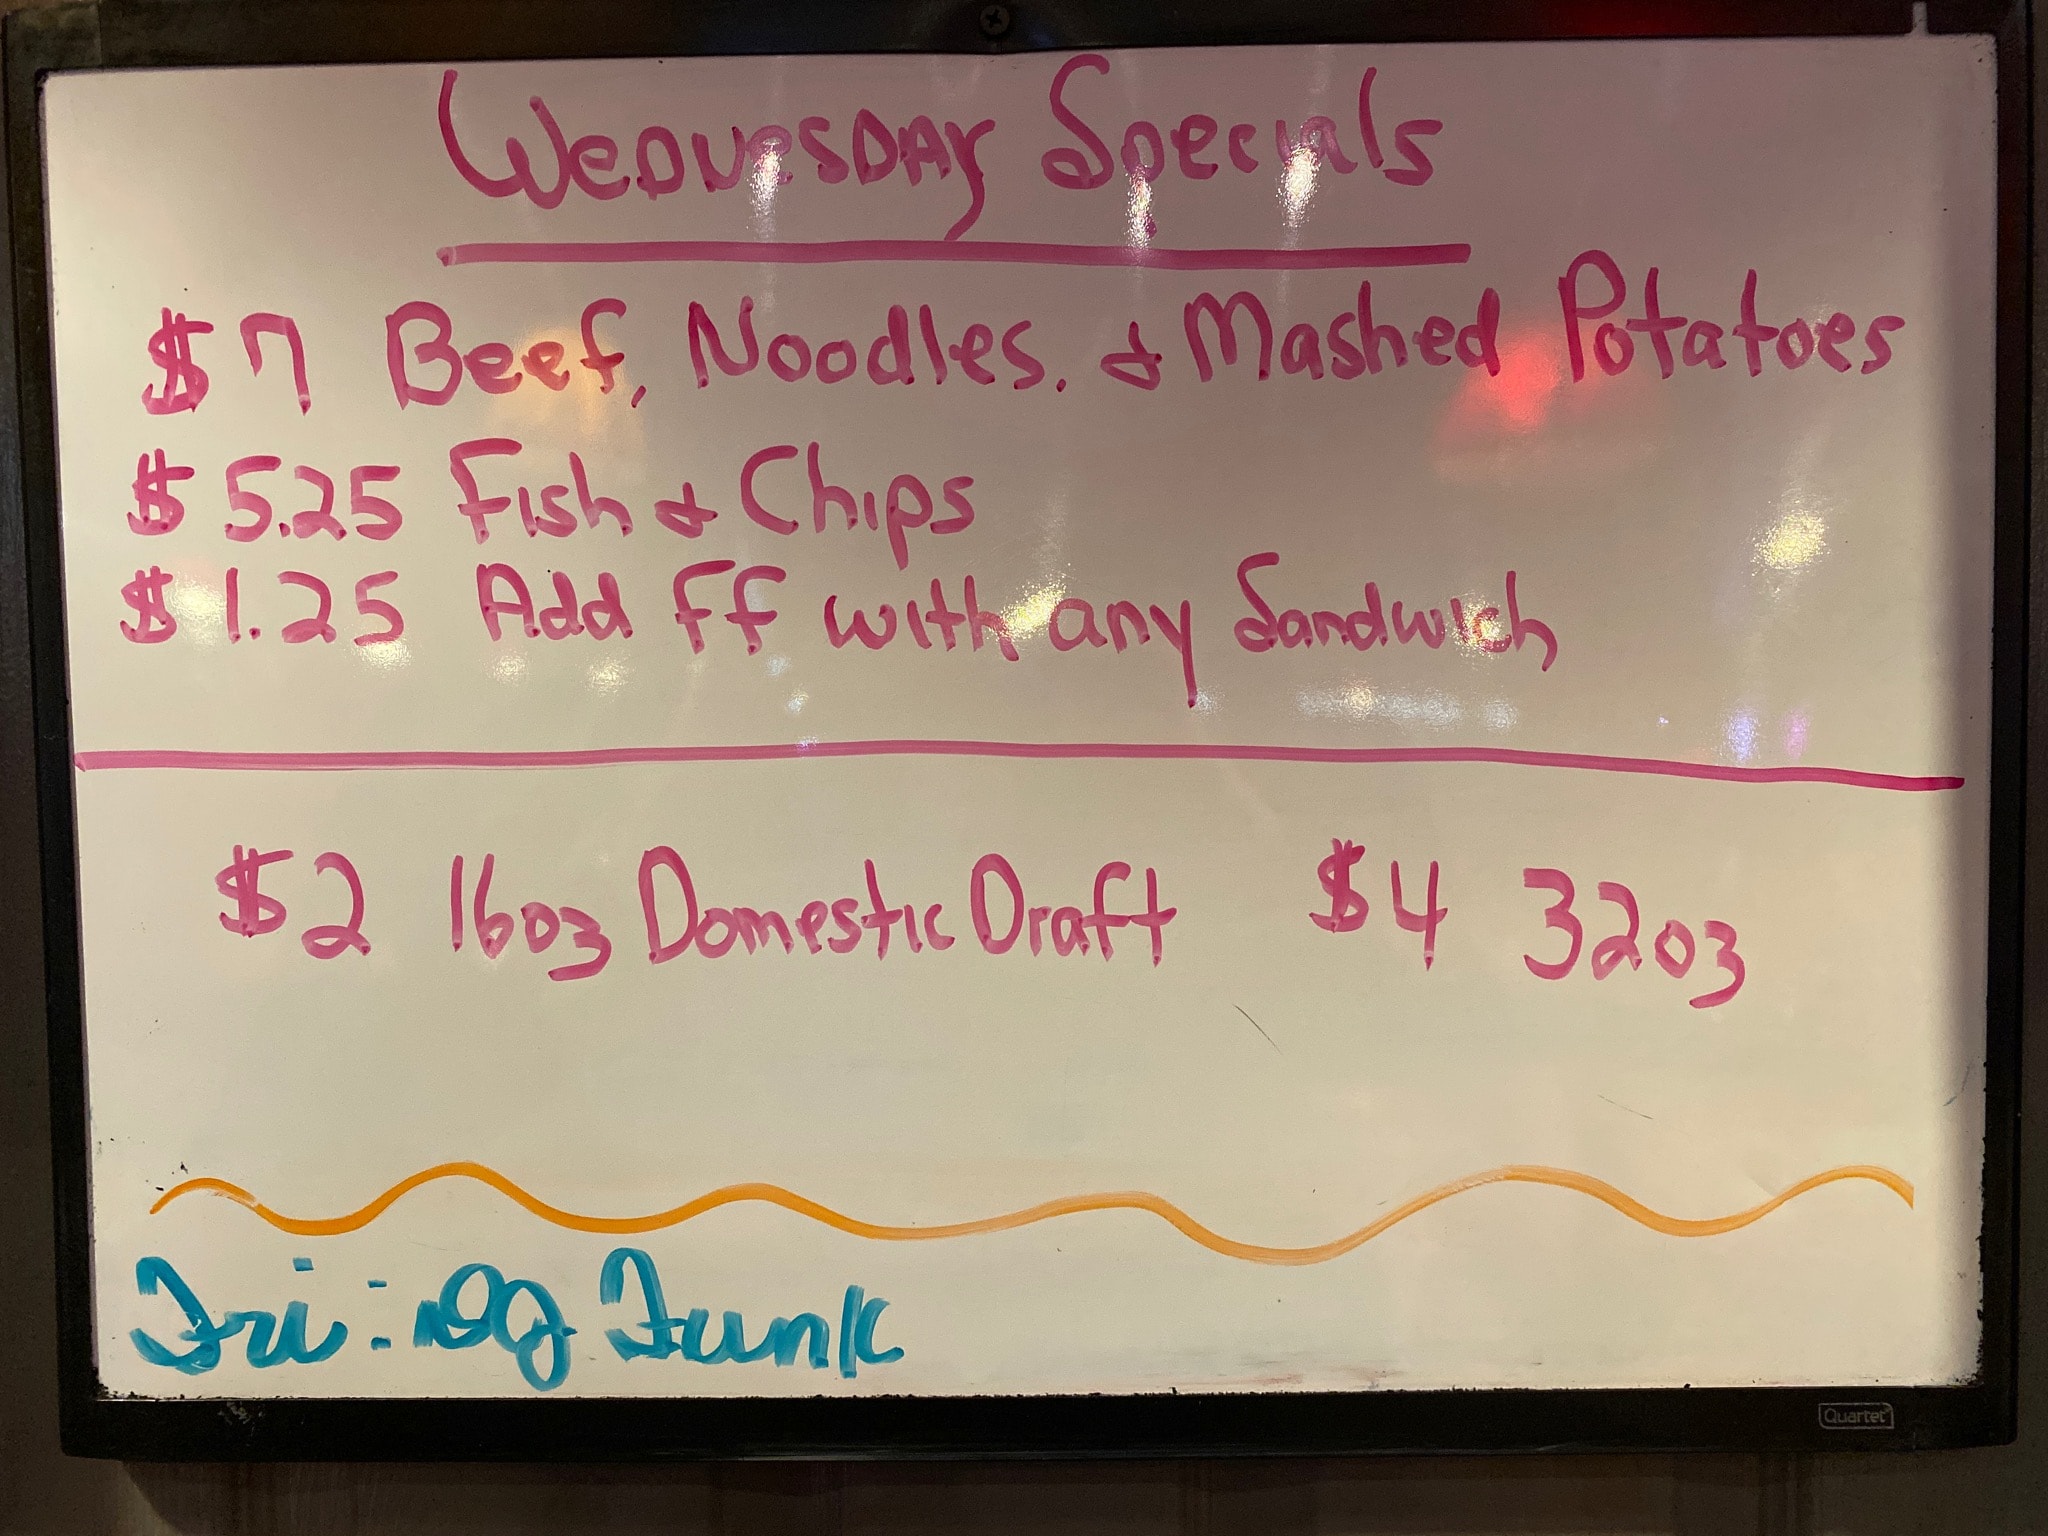 WEDNESDAY Specials
$7 Beef, Noodles, & Mashed Potatoes
$5.25 Fish & Chips
$1.25 Add FF with any Sandwich
$2 16oz Domestic Draft $4 32oz
Fri: DJ Funk
Quartet